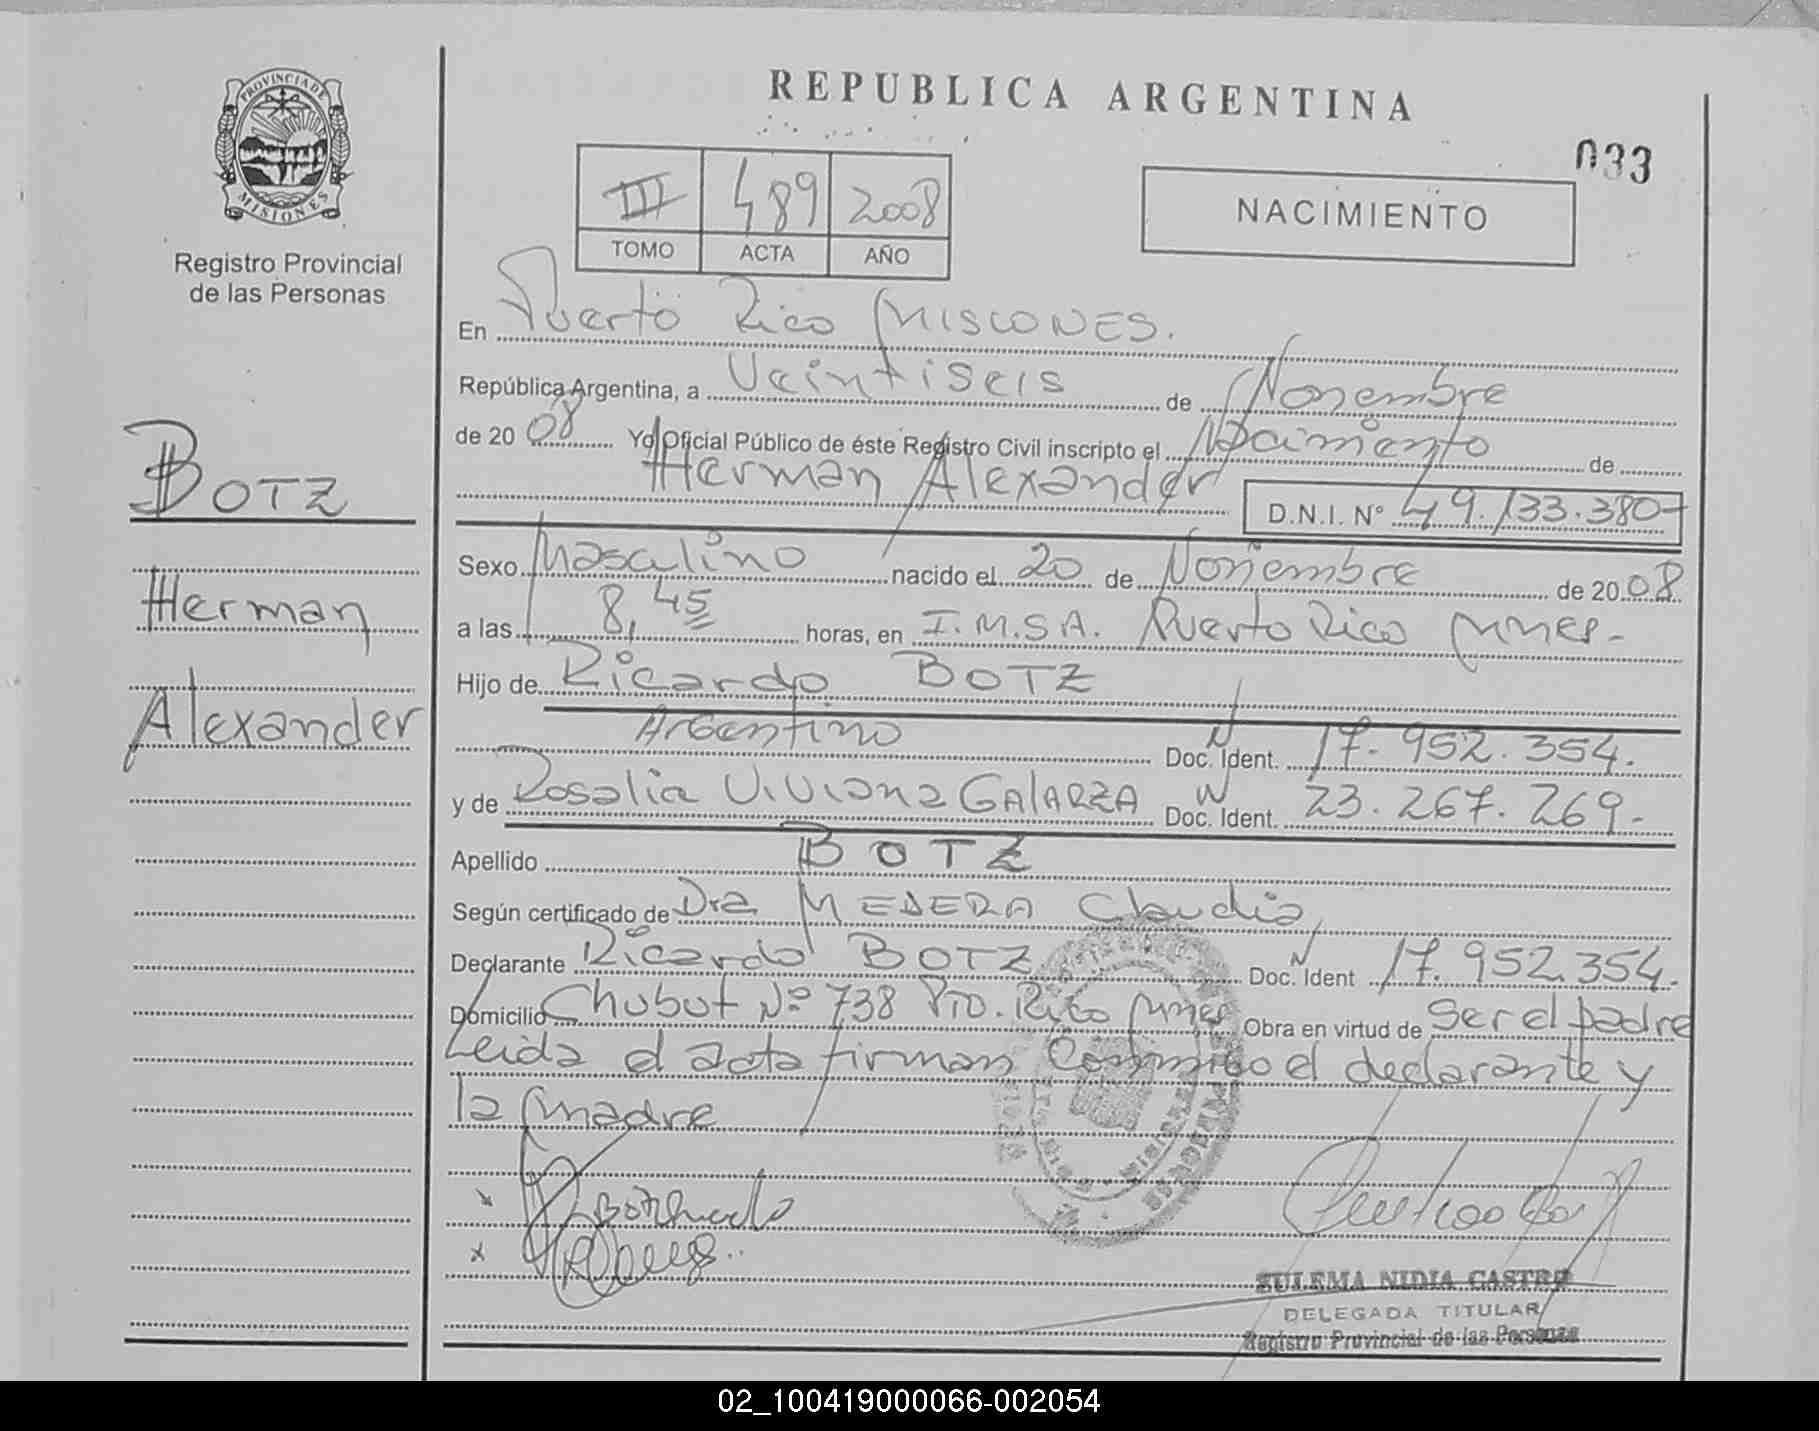 REPUBLICA ARGENTINA
033
PROVINCIA DE
MISIONES
Registro Provincial
de las Personas
III 489 2008
TOMO ACTA AÑO
NACIMIENTO
En Puerto Rico MISIONES.
República Argentina, a Veintiseis de Noviembre
de 20 08 Yo Oficial Público de éste Registro Civil inscripto el Nacimiento de
Herman Alexander D.N.I. Nº 49.133.380-
BOTZ
Herman
Alexander
Sexo Masculino nacido el 20 de Noviembre de 20 08
a las 8,45 horas, en I.M.S.A. Puerto Rico Mnes-
Hijo de Ricardo BOTZ
Argentino Doc. Ident. 17.952.354.
y de Rosalia Viviana GALARZA Doc. Ident. 23.267.269.-
Apellido BOTZ
Según certificado de Dra MEDERA Claudia
Declarante Ricardo BOTZ Doc. Ident 17.952.354.
Domicilio Chubut Nº 738 Pto. Rico Mnes Obra en virtud de ser el padre
Leida el acta firman Conmigo el declarante y
la madre
ZULEMA NIDIA CASTRO
DELEGADA TITULAR
Registro Provincial de las Personas
02_100419000066-002054